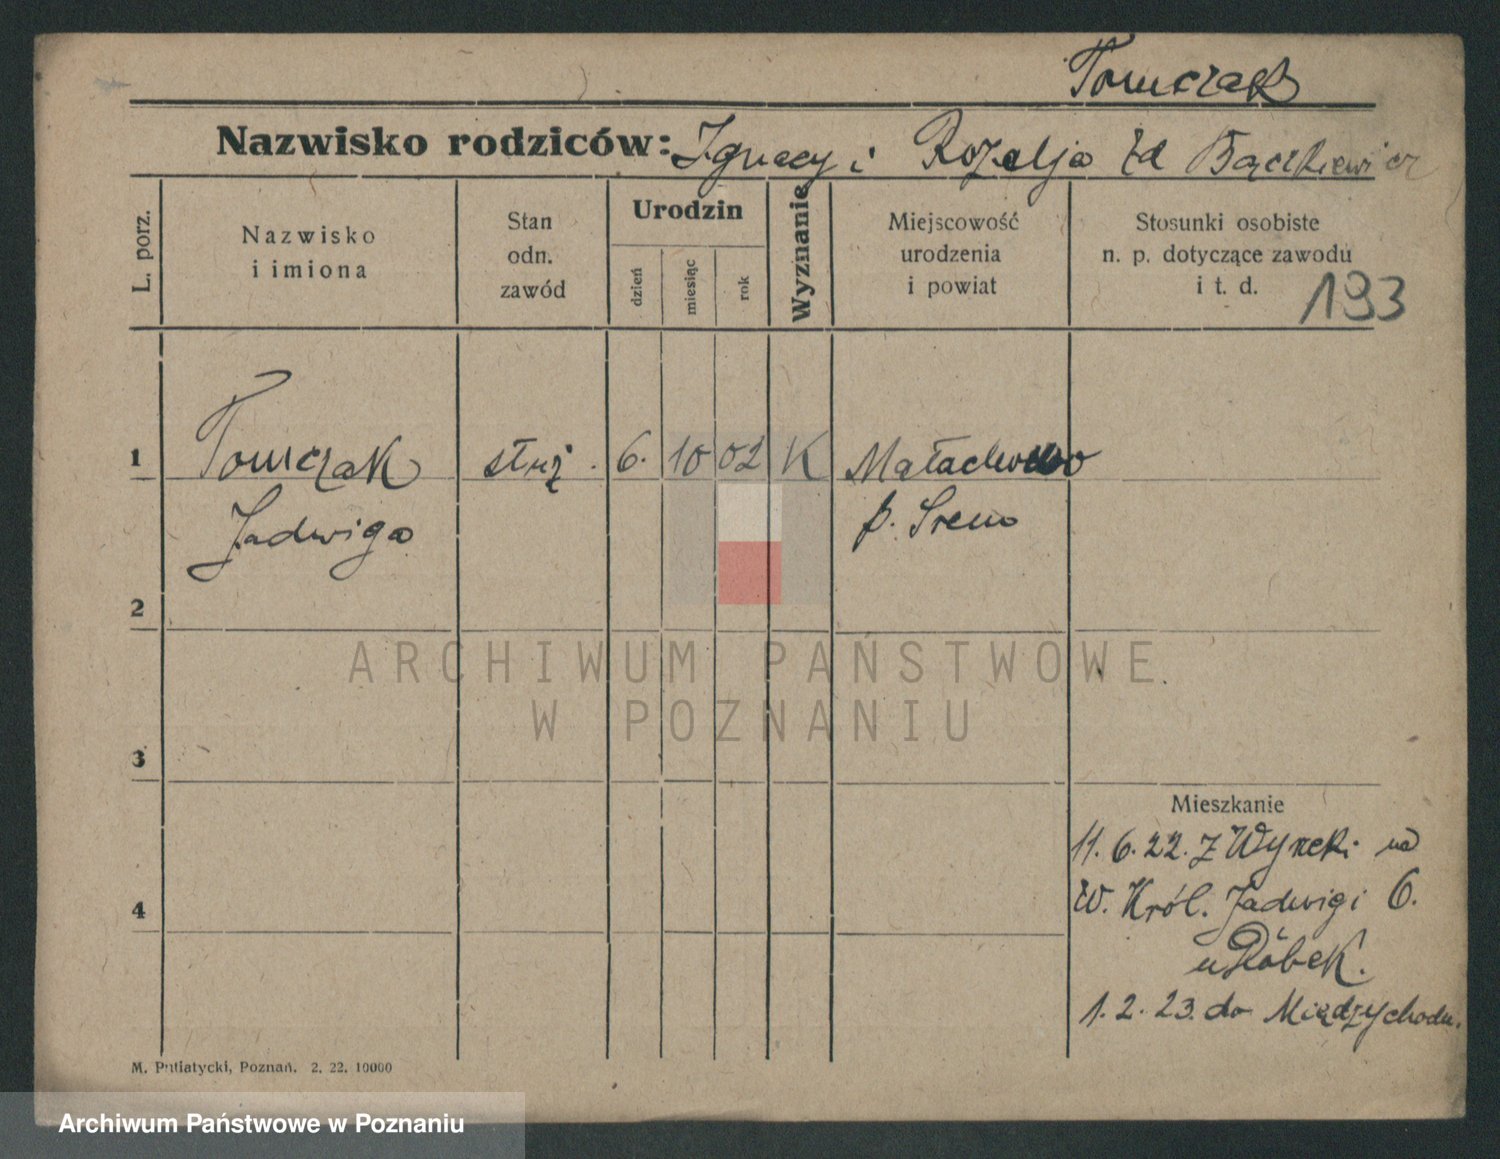 Tomczak
Nazwisko rodziców: Ignacy i Rozalja
L. porz.
Nazwisko
i imiona
Stan
odn.
zawód
Urodzin
dzień
miesiąc
rok
Wyznanie
Miejscowość
urodzenia
i powiat
Stosunki osobiste
n. p. dotyczące zawodu
i t. d.
193
1 Tomczak służ. 6. 10 02 K Małachowo
Jadwiga p. Srem
2
3
4
Mieszkanie
11. 6. 22. z na
W. Król. Jadwigi 6.
u
1. 2. 23. do Międzychodu.
M. Putiatycki, Poznań. 2. 22. 10000
ARCHIWUM PAŃSTWOWE
W POZNANIU
Archiwum Państwowe w Poznaniu